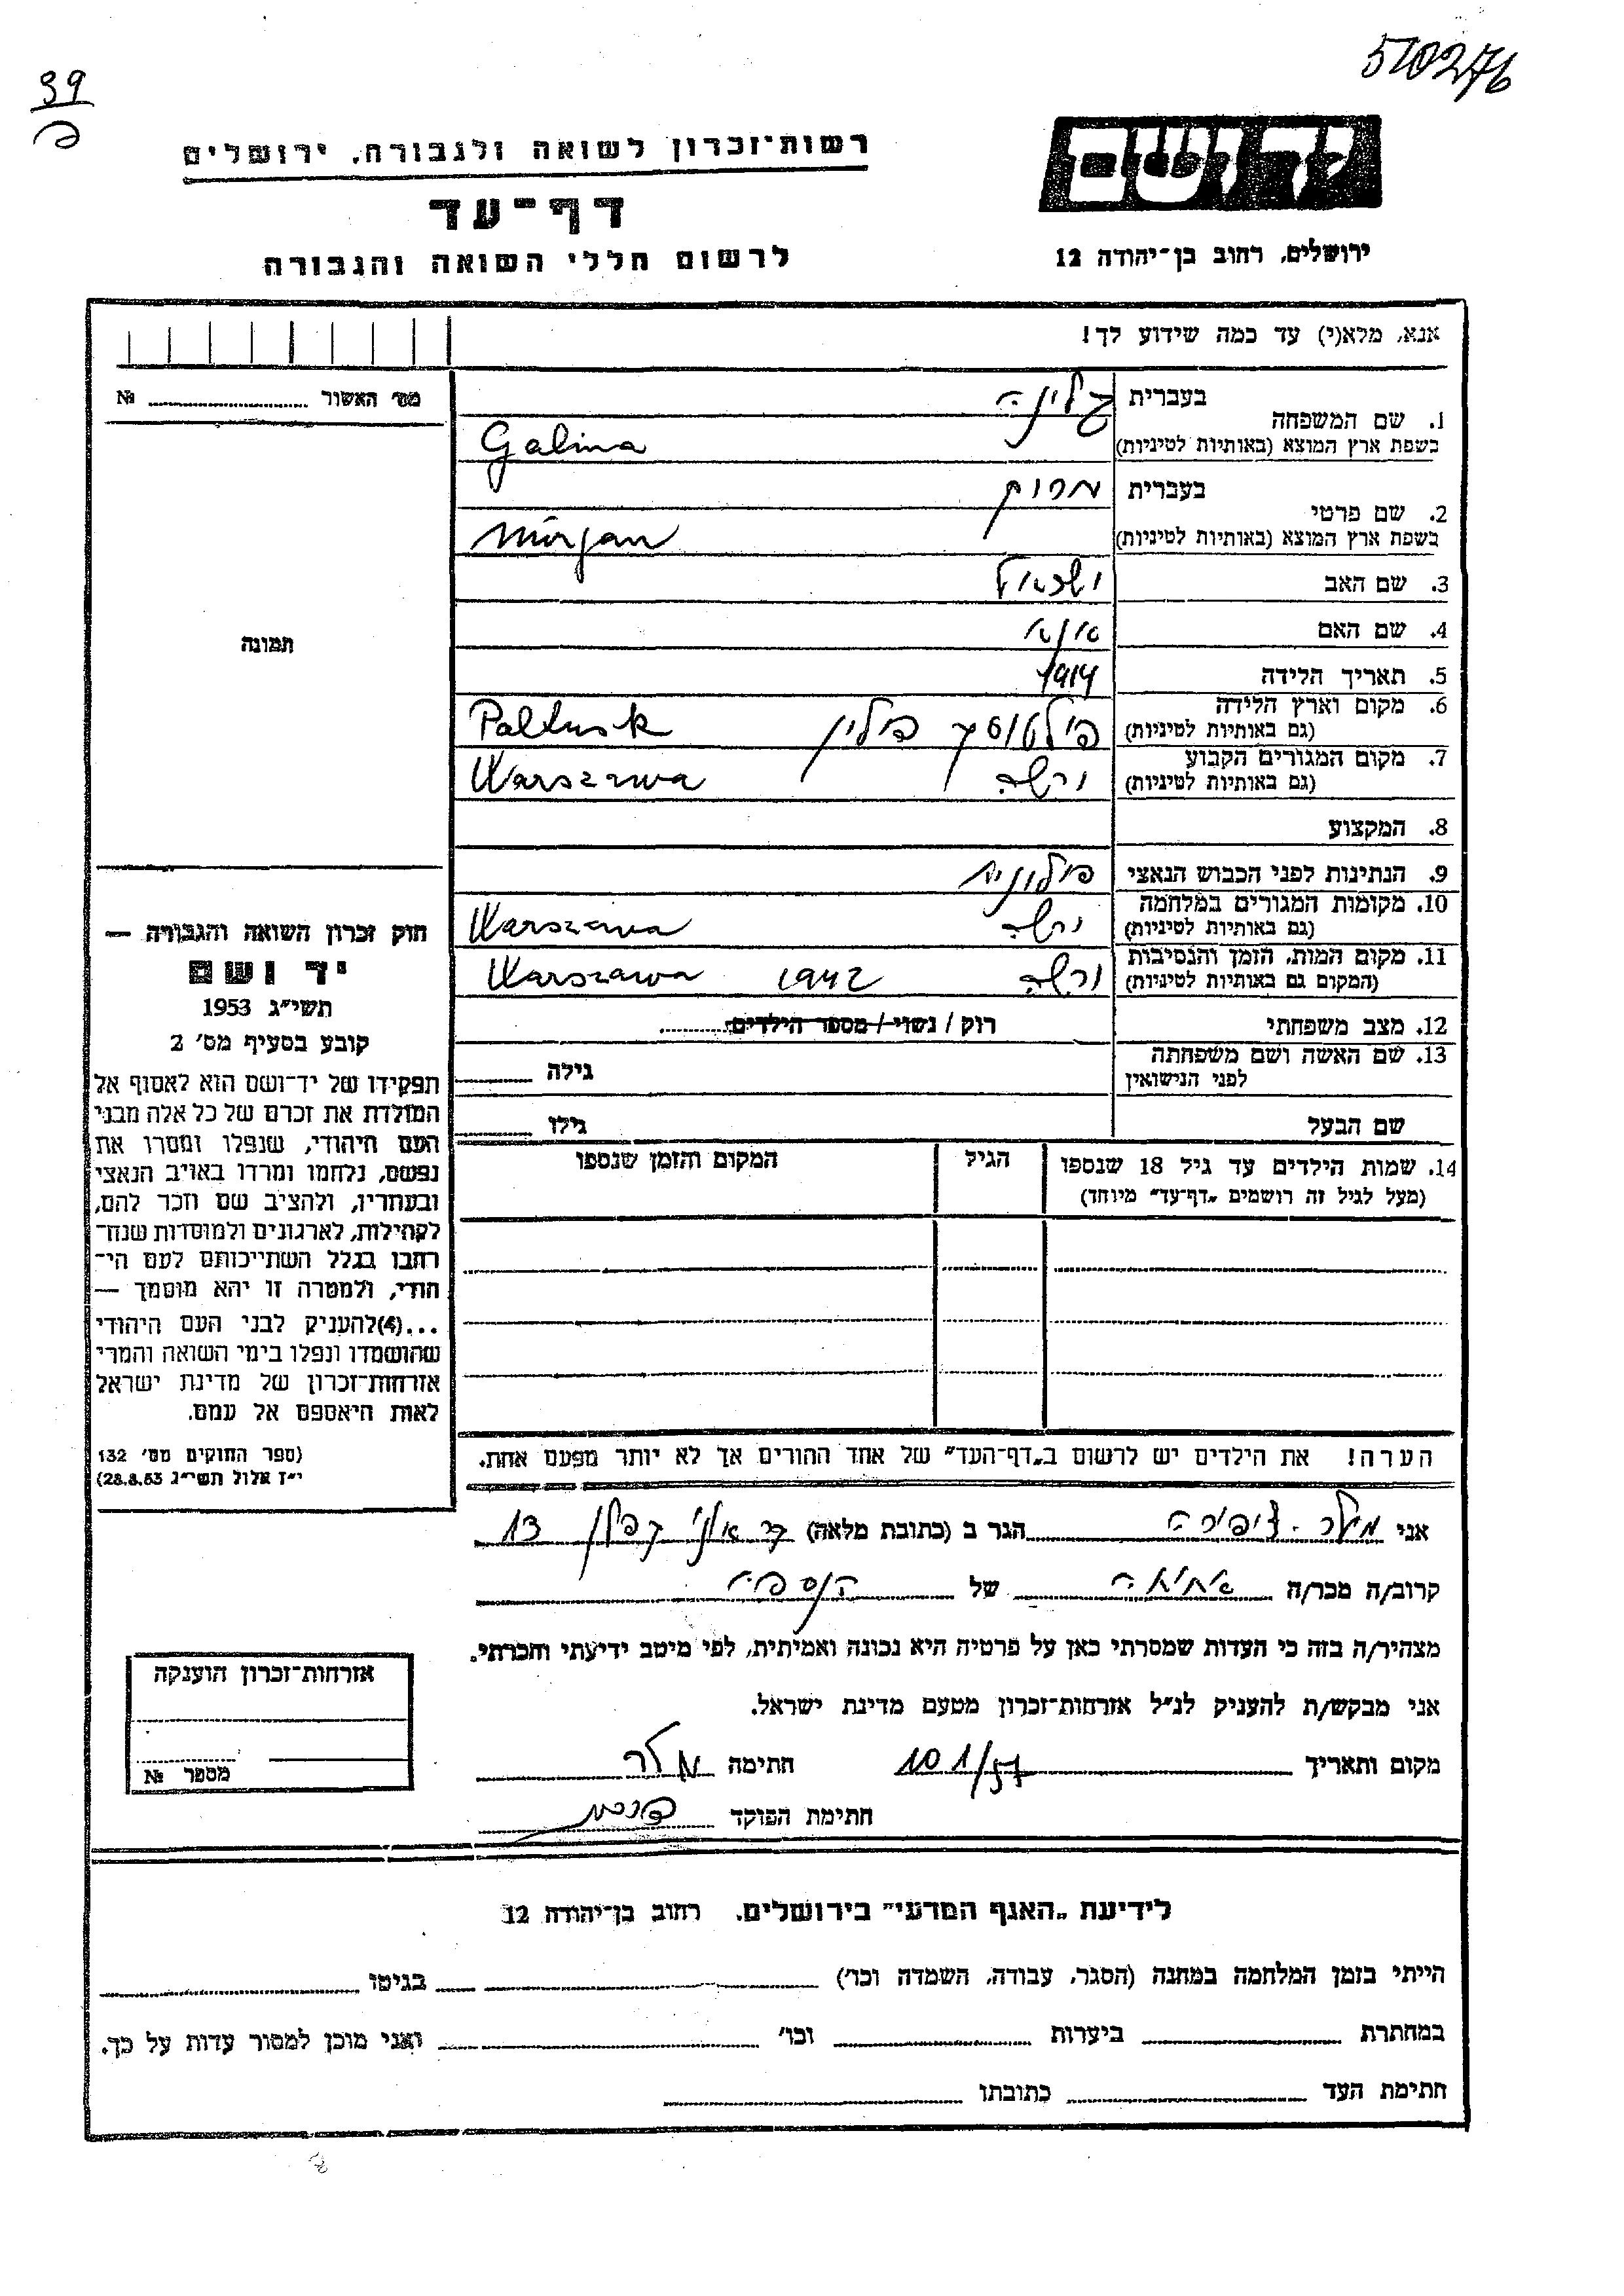 510276
39
יד ושם
רשות־זכרון לשואה ולגבורה, ירושלים
דף־עד
לרשום חללי השואה והגבורה
ירושלים, רחוב בן־יהודה 12
אנא, מלא(י) עד כמה שידוע לך!
מס׳ האשור № 
1. שם המשפחה
בעברית
בשפת ארץ המוצא (באותיות לטיניות) Galina
2. שם פרטי
בעברית
בשפת ארץ המוצא (באותיות לטיניות)
3. שם האב
4. שם האם
5. תאריך הלידה 1914
6. מקום וארץ הלידה
(גם באותיות לטיניות) פולטוסק פולין Paltusk
7. מקום המגורים הקבוע
(גם באותיות לטיניות) ורשה Warszawa
8. המקצוע
9. הנתינות לפני הכבוש הנאצי פולונית
10. מקומות המגורים במלחמה
(גם באותיות לטיניות) ורשה Warszawa
11. מקום המות, הזמן והנסיבות
(המקום גם באותיות לטיניות) ורשה 1942 Warszawa
12. מצב משפחתי רוק / נשוי / מספר הילדים
13. שם האשה ושם משפחתה
לפני הנישואין גילה
שם הבעל גילו
14. שמות הילדים עד גיל 18 שנספו
(מעל לגיל זה רושמים „דף־עד״ מיוחד)
הגיל
המקום והזמן שנספו
הערה! את הילדים יש לרשום ב„דף־העד״ של אחד ההורים אך לא יותר מפעם אחת.
תמונה
חוק זכרון השואה והגבורה —
יד ושם
תשי״ג 1953
קובע בסעיף מס׳ 2
תפקידו של יד־ושם הוא לאסוף אל
המולדת את זכרם של כל אלה מבני
העם היהודי, שנפלו ומסרו את
נפשם, נלחמו ומרדו באויב הנאצי
ובעוזריו, ולהציב שם וזכר להם,
לקהילות, לארגונים ולמוסדות שנח־
רבו בגלל השתייכותם לעם הי־
הודי, ולמטרה זו יהא מוסמך —
...(4)להעניק לבני העם היהודי
שהושמדו ונפלו בימי השואה והמרי
אזרחות־זכרון של מדינת ישראל
לאות היאספם אל עמם.
(ספר החוקים מס׳ 132
י״ז אלול תשי״ג 28.8.53)
אני מילר ציפורה הגר ב (כתובת מלאה) קפלן 13
קרוב/ה מכר/ה אחות של הנספה
מצהיר/ה בזה כי העדות שמסרתי כאן על פרטיה היא נכונה ואמיתית, לפי מיטב ידיעתי והכרתי.
אני מבקש/ת להעניק לנ״ל אזרחות־זכרון מטעם מדינת ישראל.
מקום ותאריך 10 1/57 חתימה
חתימת הפוקד
אזרחות־זכרון הוענקה
מספר №
לידיעת „האגף המדעי״ בירושלים, רחוב בן־יהודה 12
הייתי בזמן המלחמה במחנה (הסגר, עבודה, השמדה וכו׳) בגיטו
במחתרת ביערות וכו׳ ואני מוכן למסור עדות על כך.
חתימת העד כתובתו